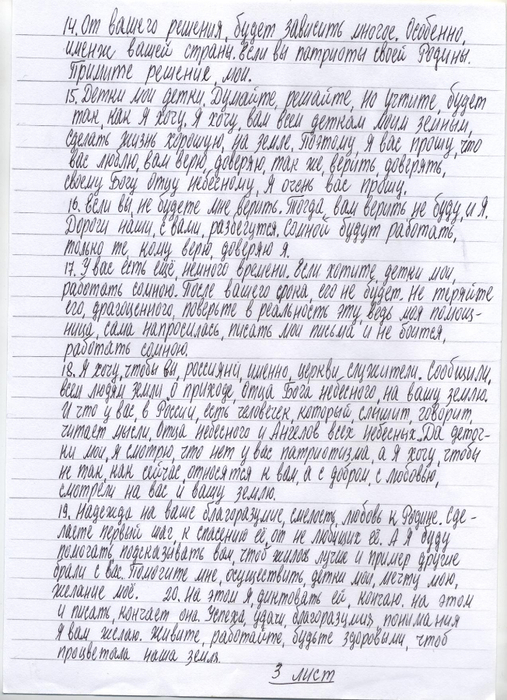 14. От вашего решения, будет зависить многое. Особенно,
имендж вашей страны. Если вы патриоты своей Родины.
Примите решение, мои.
15. Детки мои детки. Думайте, решайте, но учтите, будет
так, как Я хочу. Я хочу, вам всем деткам моим земным,
сделать жизнь хорошую, на земле. Поэтому, Я вас прошу, что
вас люблю, вам верю, доверяю, так же, верить, доверять,
своему Богу отцу небесному, Я очень вас прошу.
16. Если вы, не будете мне верить. Тогда, вам верить не буду, и Я.
Дороги наши, с вами, разбегутся. Сомной будут работать,
только те, кому верю, доверяю Я.
17. У вас есть ещё, немного времени. Если хотите, детки мои,
работать сомною. После вашего срока, его не будет. Не теряйте
его, драгоценного, поверьте в реальность эту, ведь моя помощ-
ница, сама напросилась, писать мои письма и не боится,
работать сомною.
18. Я хочу, чтобы вы, россияни, именно, церкви, служители. Сообщили,
всем людям земли, о приходе, Отца Бога небесного, на вашу землю.
И что у вас, в России, есть человечек, который, слышит, говорит,
читает мысли, Отца небесного и Ангелов всех небесных. Да деточ-
ки мои, Я смотрю, что нет у вас патриотизма, а Я хочу, чтобы
не так, как сейчас, относятся к вам, а с добром, с любовью,
смотрели на вас и вашу землю.
19. Надежда на ваше благоразумие, смелость, любовь к Родине. Сде-
лаете первый шаг, к спасению её, от не любящих её. А Я буду
помогать, подсказывать вам, чтоб жилось лучше и пример другие
брали с вас. Помогите мне, осуществить, детки мои, мечту мою,
желание моё. 20. на этом Я, диктовать ей, кончаю. на этом
и писать, кончает она. Успеха, удачи, благоразумия, понимания
Я вам желаю. Живите, работайте, будьте здоровыми, чтоб
процветала наша земля.
3 лист